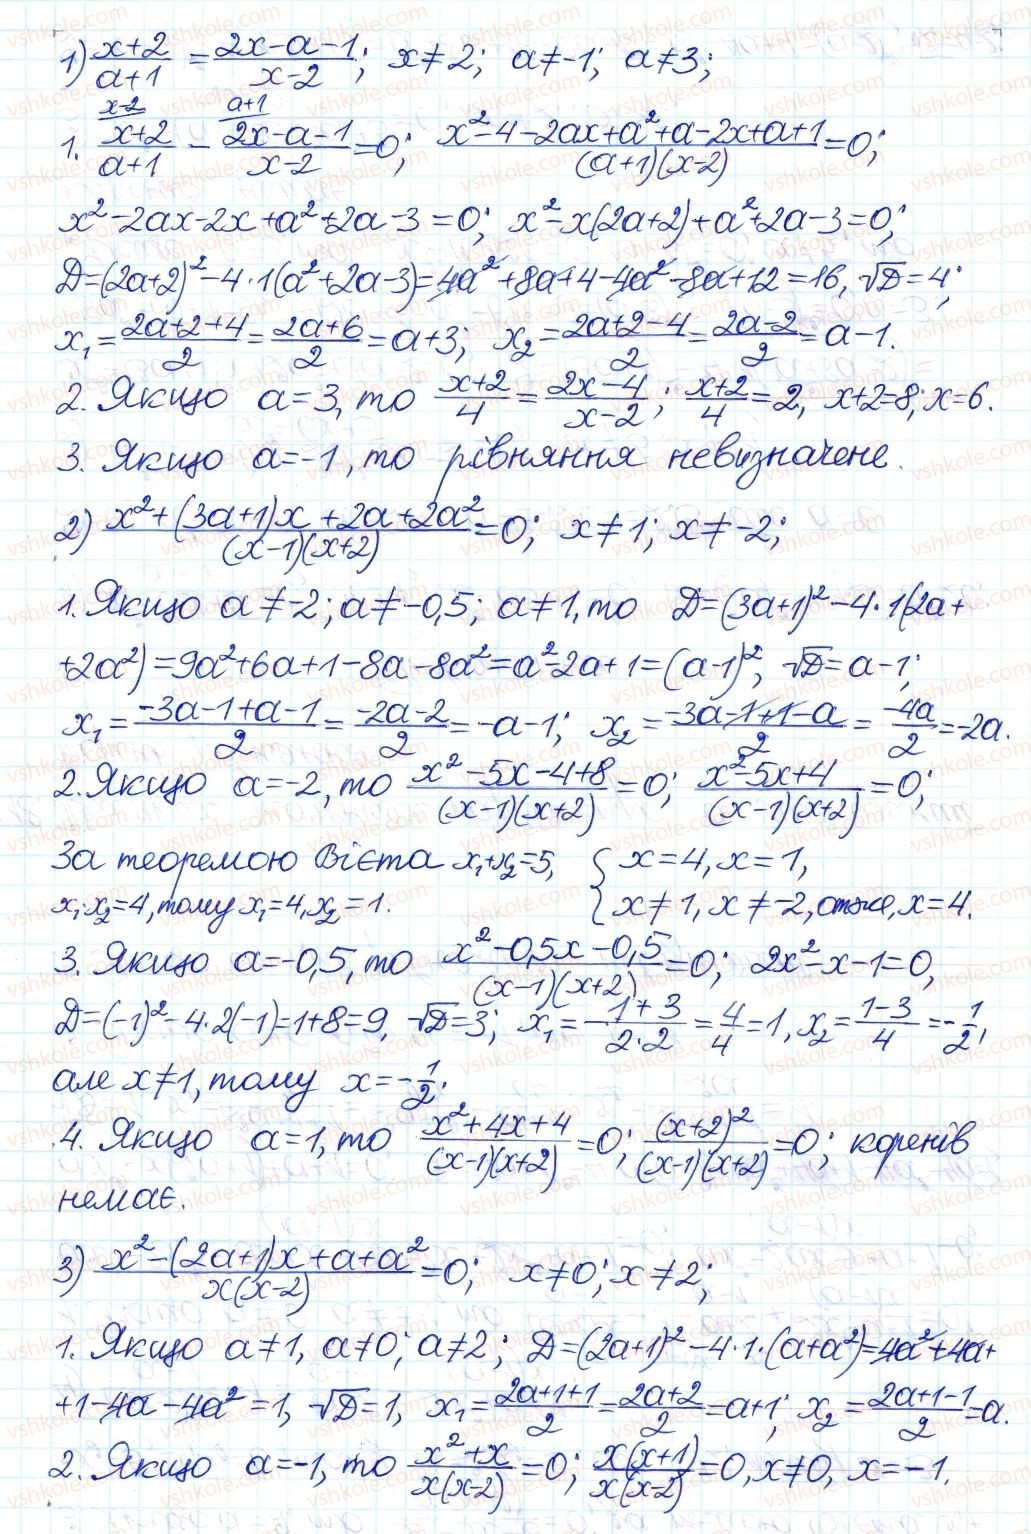 1) (x+2)/(a+1) = (2x-a-1)/(x-2); x≠2; a≠-1; a≠3;
1. (x+2)/(a+1) [x-2] - (2x-a-1)/(x-2) [a+1] = 0; (x²-4-2ax+a²+a-2x+a+1)/((a+1)(x-2)) = 0;
x²-2ax-2x+a²+2a-3=0; x²-x(2a+2)+a²+2a-3=0;
D=(2a+2)²-4·1(a²+2a-3)=4a²+8a+4-4a²-8a+12=16, √D=4;
x₁=(2a+2+4)/2=(2a+6)/2=a+3; x₂=(2a+2-4)/2=(2a-2)/2=a-1.
2. Якщо a=3, то (x+2)/4=(2x-4)/(x-2); (x+2)/4=2, x+2=8; x=6.
3. Якщо a=-1, то рівняння невизначене.
2) (x²+(3a+1)x+2a+2a²)/((x-1)(x+2))=0; x≠1; x≠-2;
1. Якщо a≠-2; a≠-0,5; a≠1, то D=(3a+1)²-4·1(2a+
+2a²)=9a²+6a+1-8a-8a²=a²-2a+1=(a-1)², √D=a-1;
x₁=(-3a-1+a-1)/2=(-2a-2)/2=-a-1; x₂=(-3a-1+1-a)/2=(-4a)/2=-2a.
2. Якщо a=-2, то (x²-5x-4+8)/((x-1)(x+2))=0; (x²-5x+4)/((x-1)(x+2))=0;
За теоремою Вієта x₁+x₂=5, { x=4, x=1,
x₁·x₂=4, тому x₁=4, x₂=1. { x≠1, x≠-2, отже, x=4.
3. Якщо a=-0,5, то (x²-0,5x-0,5)/((x-1)(x+2))=0; 2x²-x-1=0,
D=(-1)²-4·2(-1)=1+8=9, √D=3; x₁=-(1+3)/(2·2)=4/4=1, x₂=(1-3)/4=-1/2,
але x≠1, тому x=-1/2.
4. Якщо a=1, то (x²+4x+4)/((x-1)(x+2))=0; (x+2)²/((x-1)(x+2))=0; коренів
немає.
3) (x²-(2a+1)x+a+a²)/(x(x-2))=0; x≠0; x≠2;
1. Якщо a≠1, a≠0; a≠2; D=(2a+1)²-4·1·(a+a²)=4a²+4a+
+1-4a-4a²=1, √D=1, x₁=(2a+1+1)/2=(2a+2)/2=a+1; x₂=(2a+1-1)/2=a.
2. Якщо a=-1, то (x²+x)/(x(x-2))=0; x(x+1)/(x(x-2))=0, x≠0, x=-1.